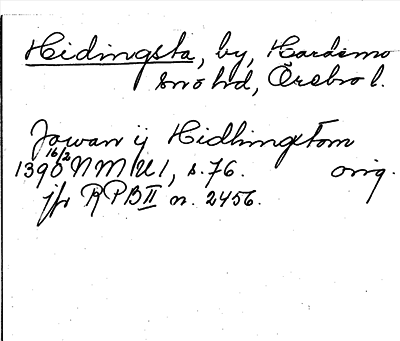 Hidingsta, by, Hardemo
sn o hd, Örebro l.
Jowan ij Hidhingstom
1390 16/2 NMU 1, s. 76. orig.
jfr RPB II n. 2456.